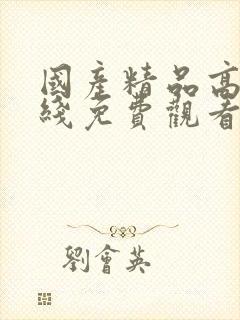 國產精品高
綫免費觀看
劉會英